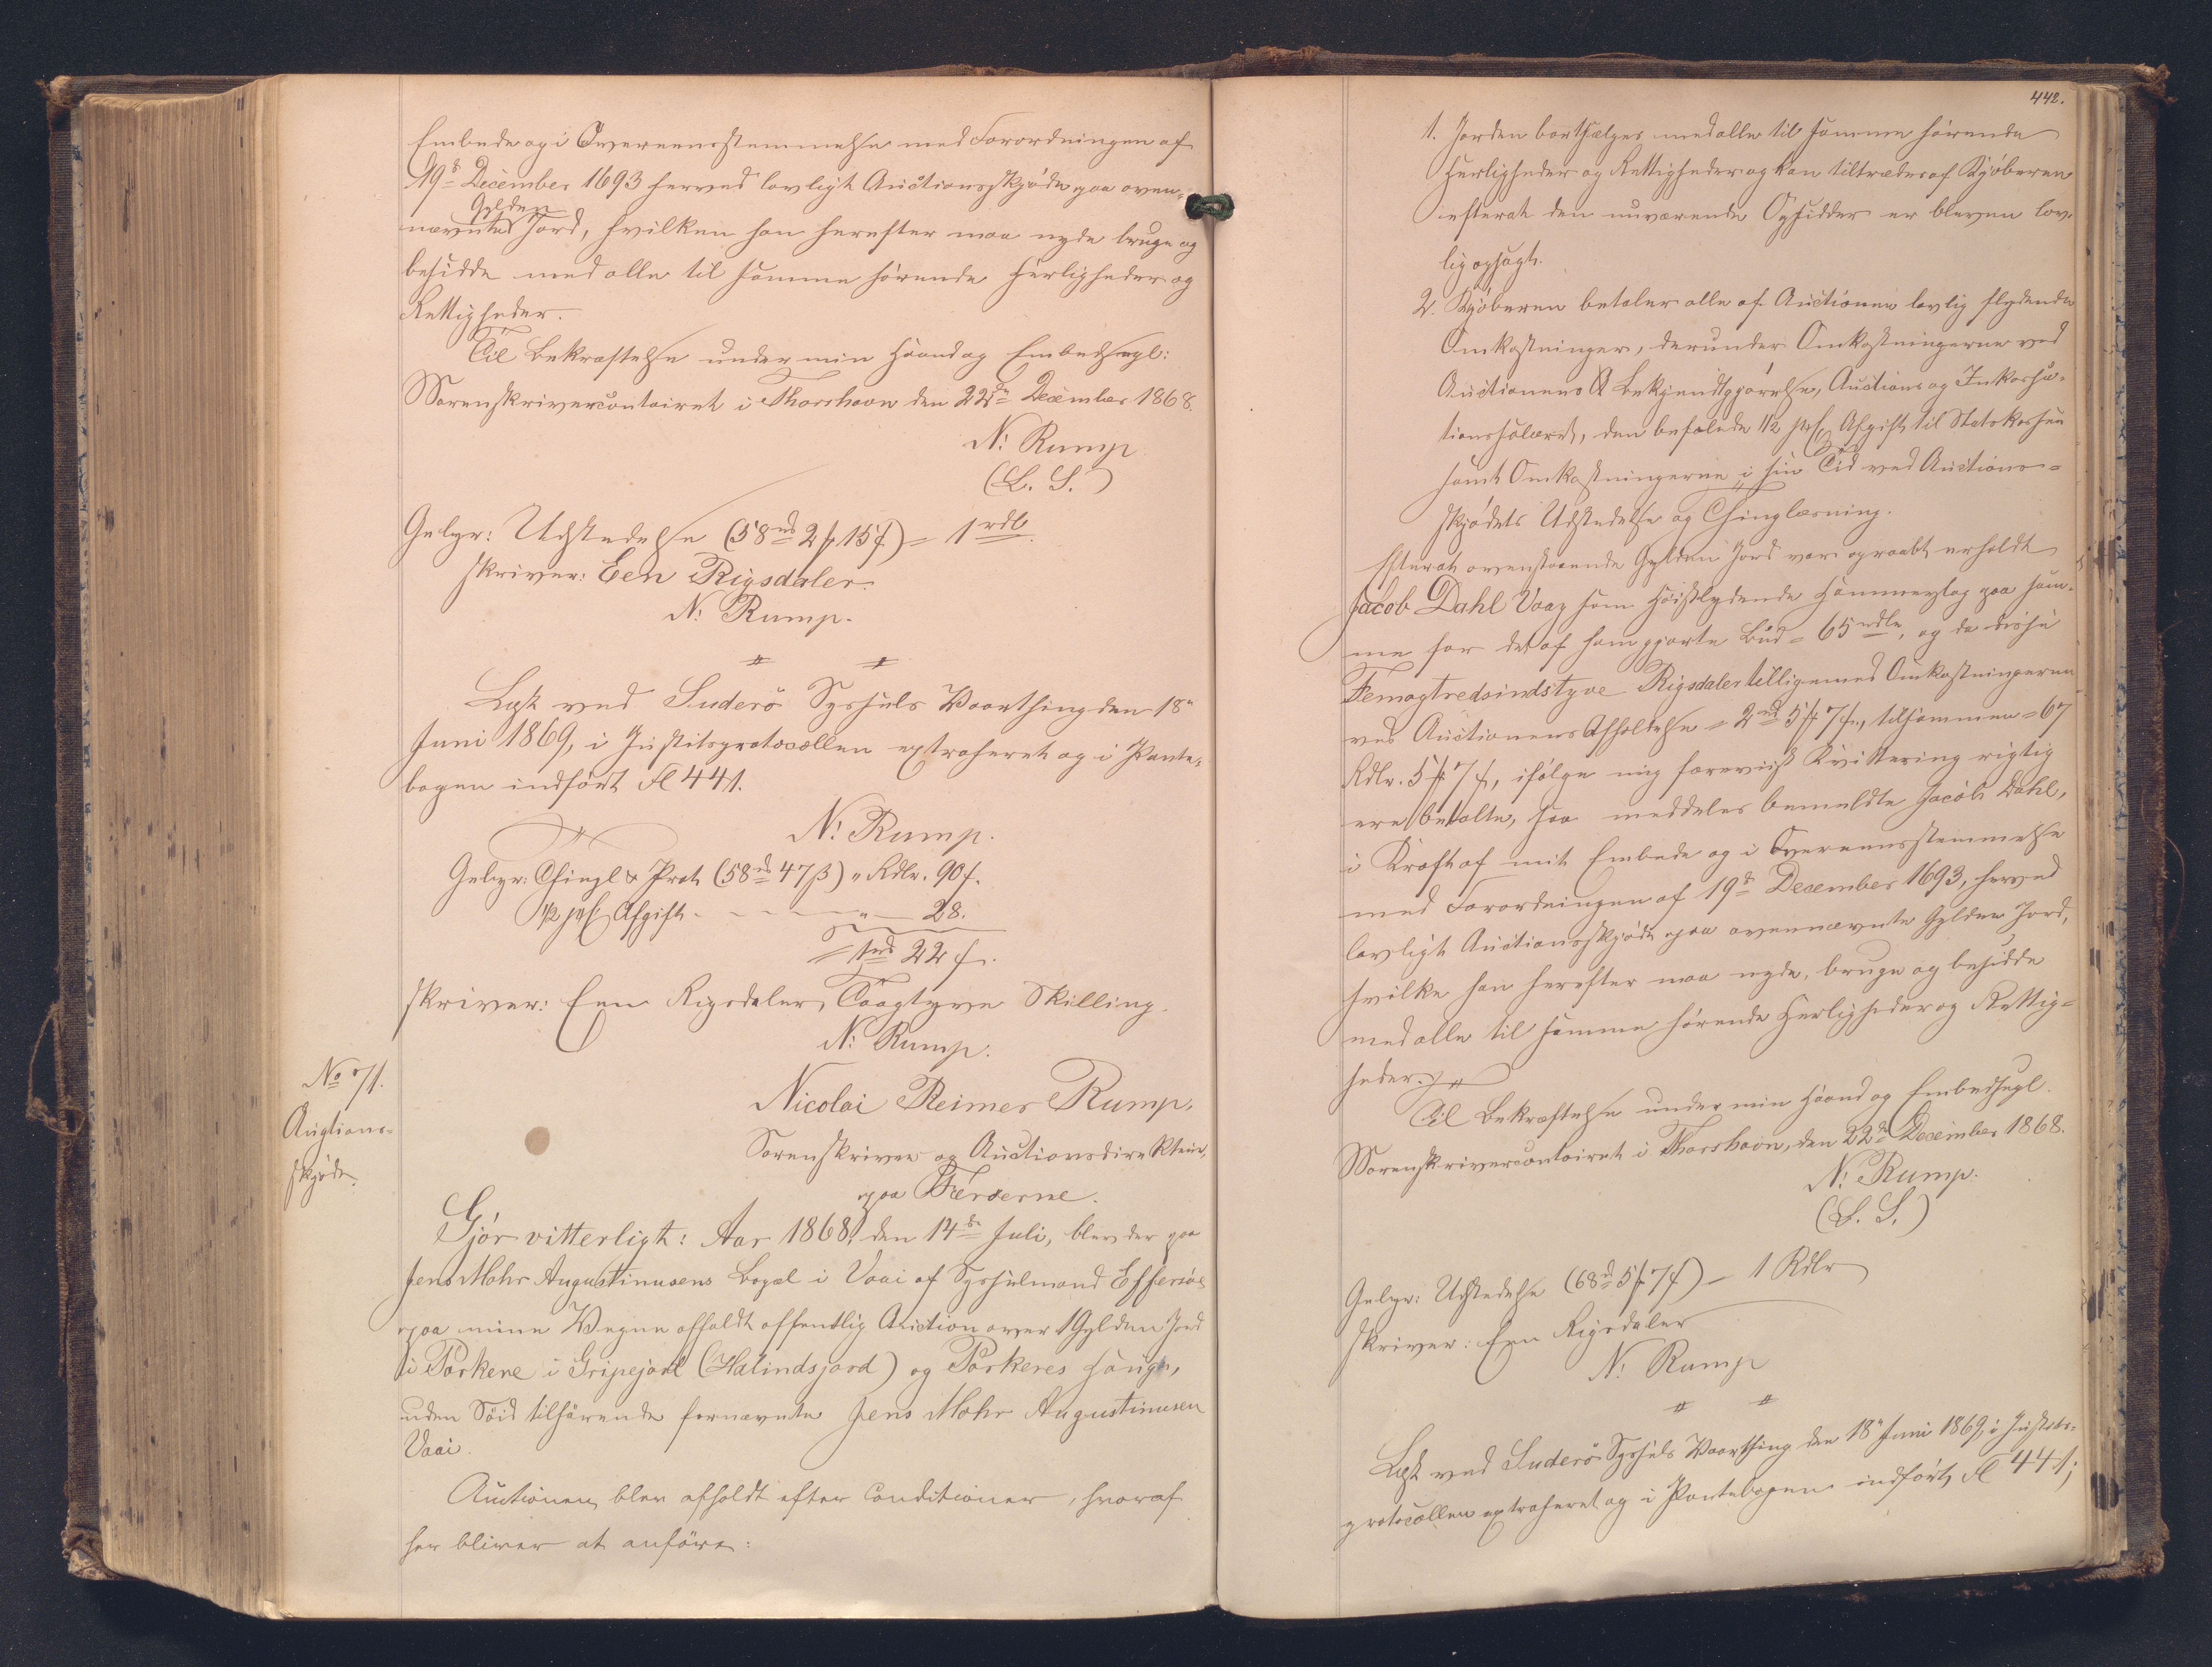 Embede og i Overeensstemmelse med Forordningen af
19de December 1693 herved lovligt Auctionsskjøde paa oven-
Gylden
nævnte Jord, hvilken han herefter maa nyde bruge og
besidde med alle til samme hørende Herligheder og
Rettigheder.
Til Bekræftelse under min Haand og Embedssegl:
Sorenskrivercontoiret i Thorshavn den 22de December 1868.
N. Rump
(L. S.)
Gebyr: Udstedelse (58rd 2 # 15 ß) = 1 rdl.
skriver: Een Rigsdaler.
N. Rump.
Læst ved Suderö Syssels Vaarthing den 18de
Juni 1869, i Justitsprotocollen extraheret og i Pante-
bogen indført Fl 441.
N. Rump.
Gebyr: Thingl & Prot (58rd 47 ß) " Rdlr. 90 ß.
1/2 pCt Afgift - - - - " - 28.
= 1rd 22 ß.
skriver: Een Rigsdaler, Toogtyve Skilling.
N. Rump.
No 71.
Auctions-
skjøde.
Nicolai Reimer Rump,
Sorenskriver og Auctionsdirekteur,
paa Færøerne.
Gjör vitterligt: Aar 1868, den 14de Juli, blev der paa
Jens Mohr Augustinusens Bopæl i Vaai af Sysselmand Effersøe
paa mine Vegne afholdt offentlig Auction over 1 Gylden Jord
i Porkere i Gripejord (Halindsjord) og Porkeres Hauge,
uden Söid tilhørende fornævnte Jens Mohr Augustinusen
Vaai.
Auctionen blev afholdt efter Conditioner, hvoraf
her bliver at anføre:
442.
1. Jorden bortsælges med alle til samme hørende
Herligheder og Rettigheder og kan tiltrædes af Kjøberen
efterat den nuværende Opsidder er bleven lov-
lig opsagt.
2. Kjøberen betaler alle af Auctionen lovlig flydende
Omkostninger, derunder Omkostningerne ved
Auctionens Bekjendtgjørelse, Auctions og Inkassa-
tionssalæret, den befalede 1/2 pCt Afgift til Statskassen
samt Omkostningerne i sin Tid ved Auctions-
skjødets Udstedelse og Thinglæsning.
Efterat ovenstaaende Gylden Jord var opraabt erholdt
Jacob Dahl Vaag som Høistbydende Hammerslag paa sam-
me for det af ham gjorte Bud = 65 rdlr, og da disse
Femogtredsindstyve Rigsdaler tilligemed Omkostningerne
ved Auctionens Afholdelse = 2rd 5 # 7 ß, tilsammen = 67
Rdlr. 5 # 7 ß, ifølge mig foreviist Kvittering rigtig
ere betalte, saa meddeles bemeldte Jacob Dahl,
i Kraft af mit Embede og i Overeensstemmelse
med Forordningen af 19de December 1693, herved
lovligt Auctionsskjøde paa ovennævnte Gylden Jord,
hvilke han herefter maa nyde, bruge og besidde
med alle til samme hørende Herligheder og Rettig-
heder.
Til Bekræftelse under min Haand og Embedssegl.
Sorenskrivercontoiret i Thorshavn, den 22de December 1868.
N. Rump.
(L. S.)
Gebyr: Udstedelse (68rd 5 # 7 ß) - 1 Rdlr
skriver: Een Rigsdaler
N. Rump
Læst ved Suderö Syssels Vaarthing den 18de Juni 1869, i Justits-
protocollen extraheret og i Pantebogen indført Fl 441;